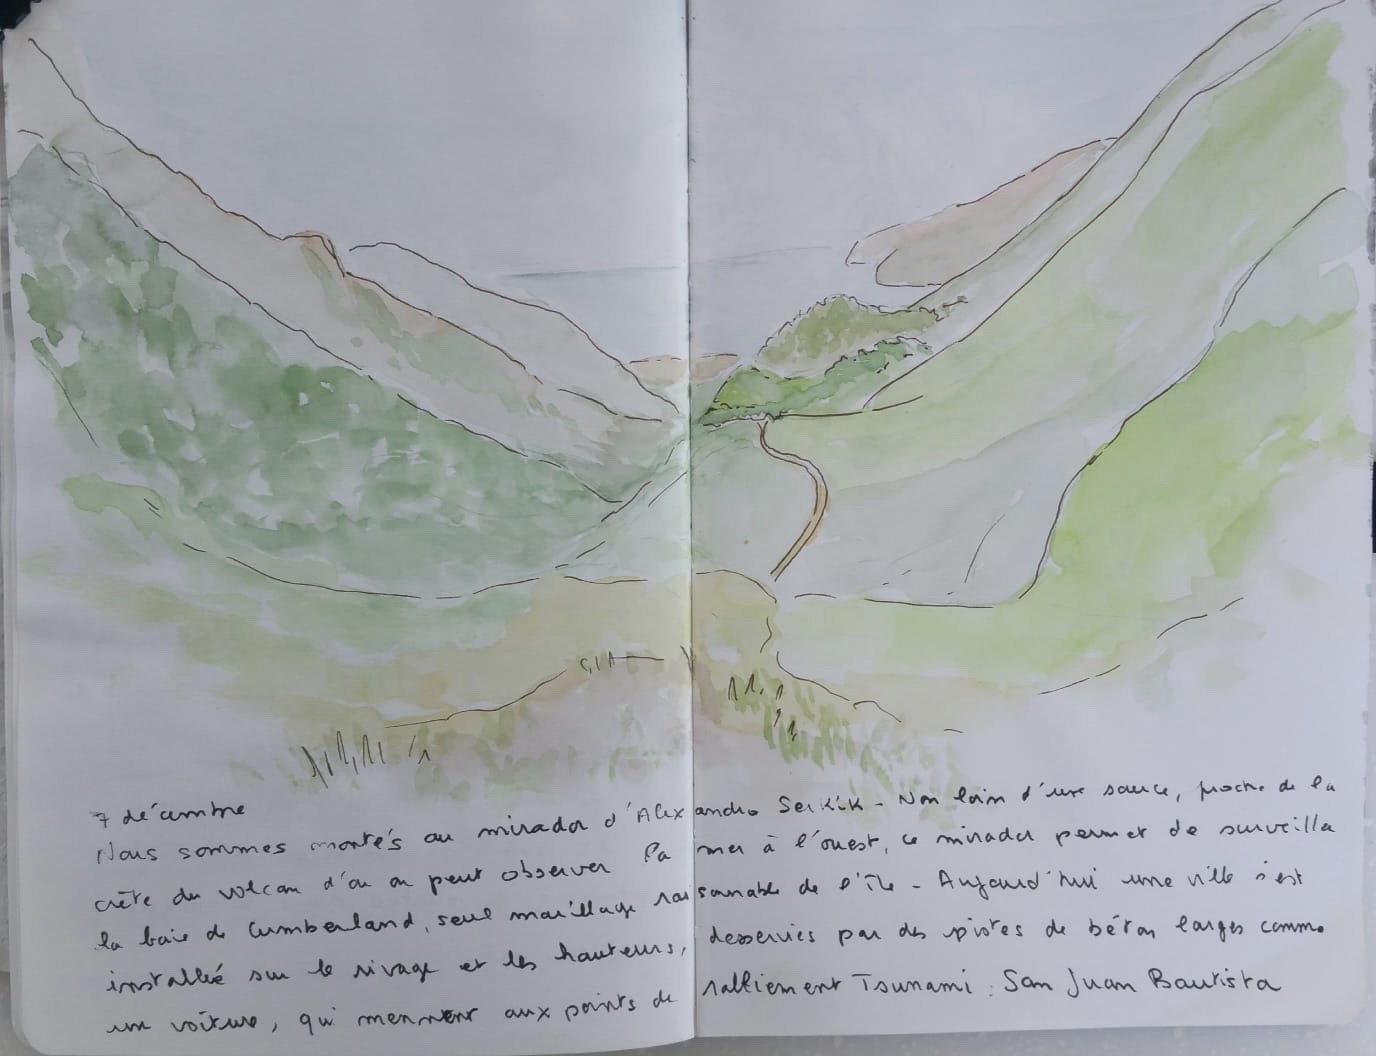 7 décembre
Nous sommes montés au mirador d'Alexandro Selkik - Non loin d'une source, proche de la
crête du volcan d'où on peut observer la mer à l'ouest, ce mirador permet de surveiller
la baie de Cumberland, seul mouillage raisonnable de l'île - Aujourd'hui une ville s'est
installée sur le rivage et les hauteurs, desservies par des pistes de béton larges comme
une voiture, qui mennent aux points de ralliement Tsunami : San Juan Bautista